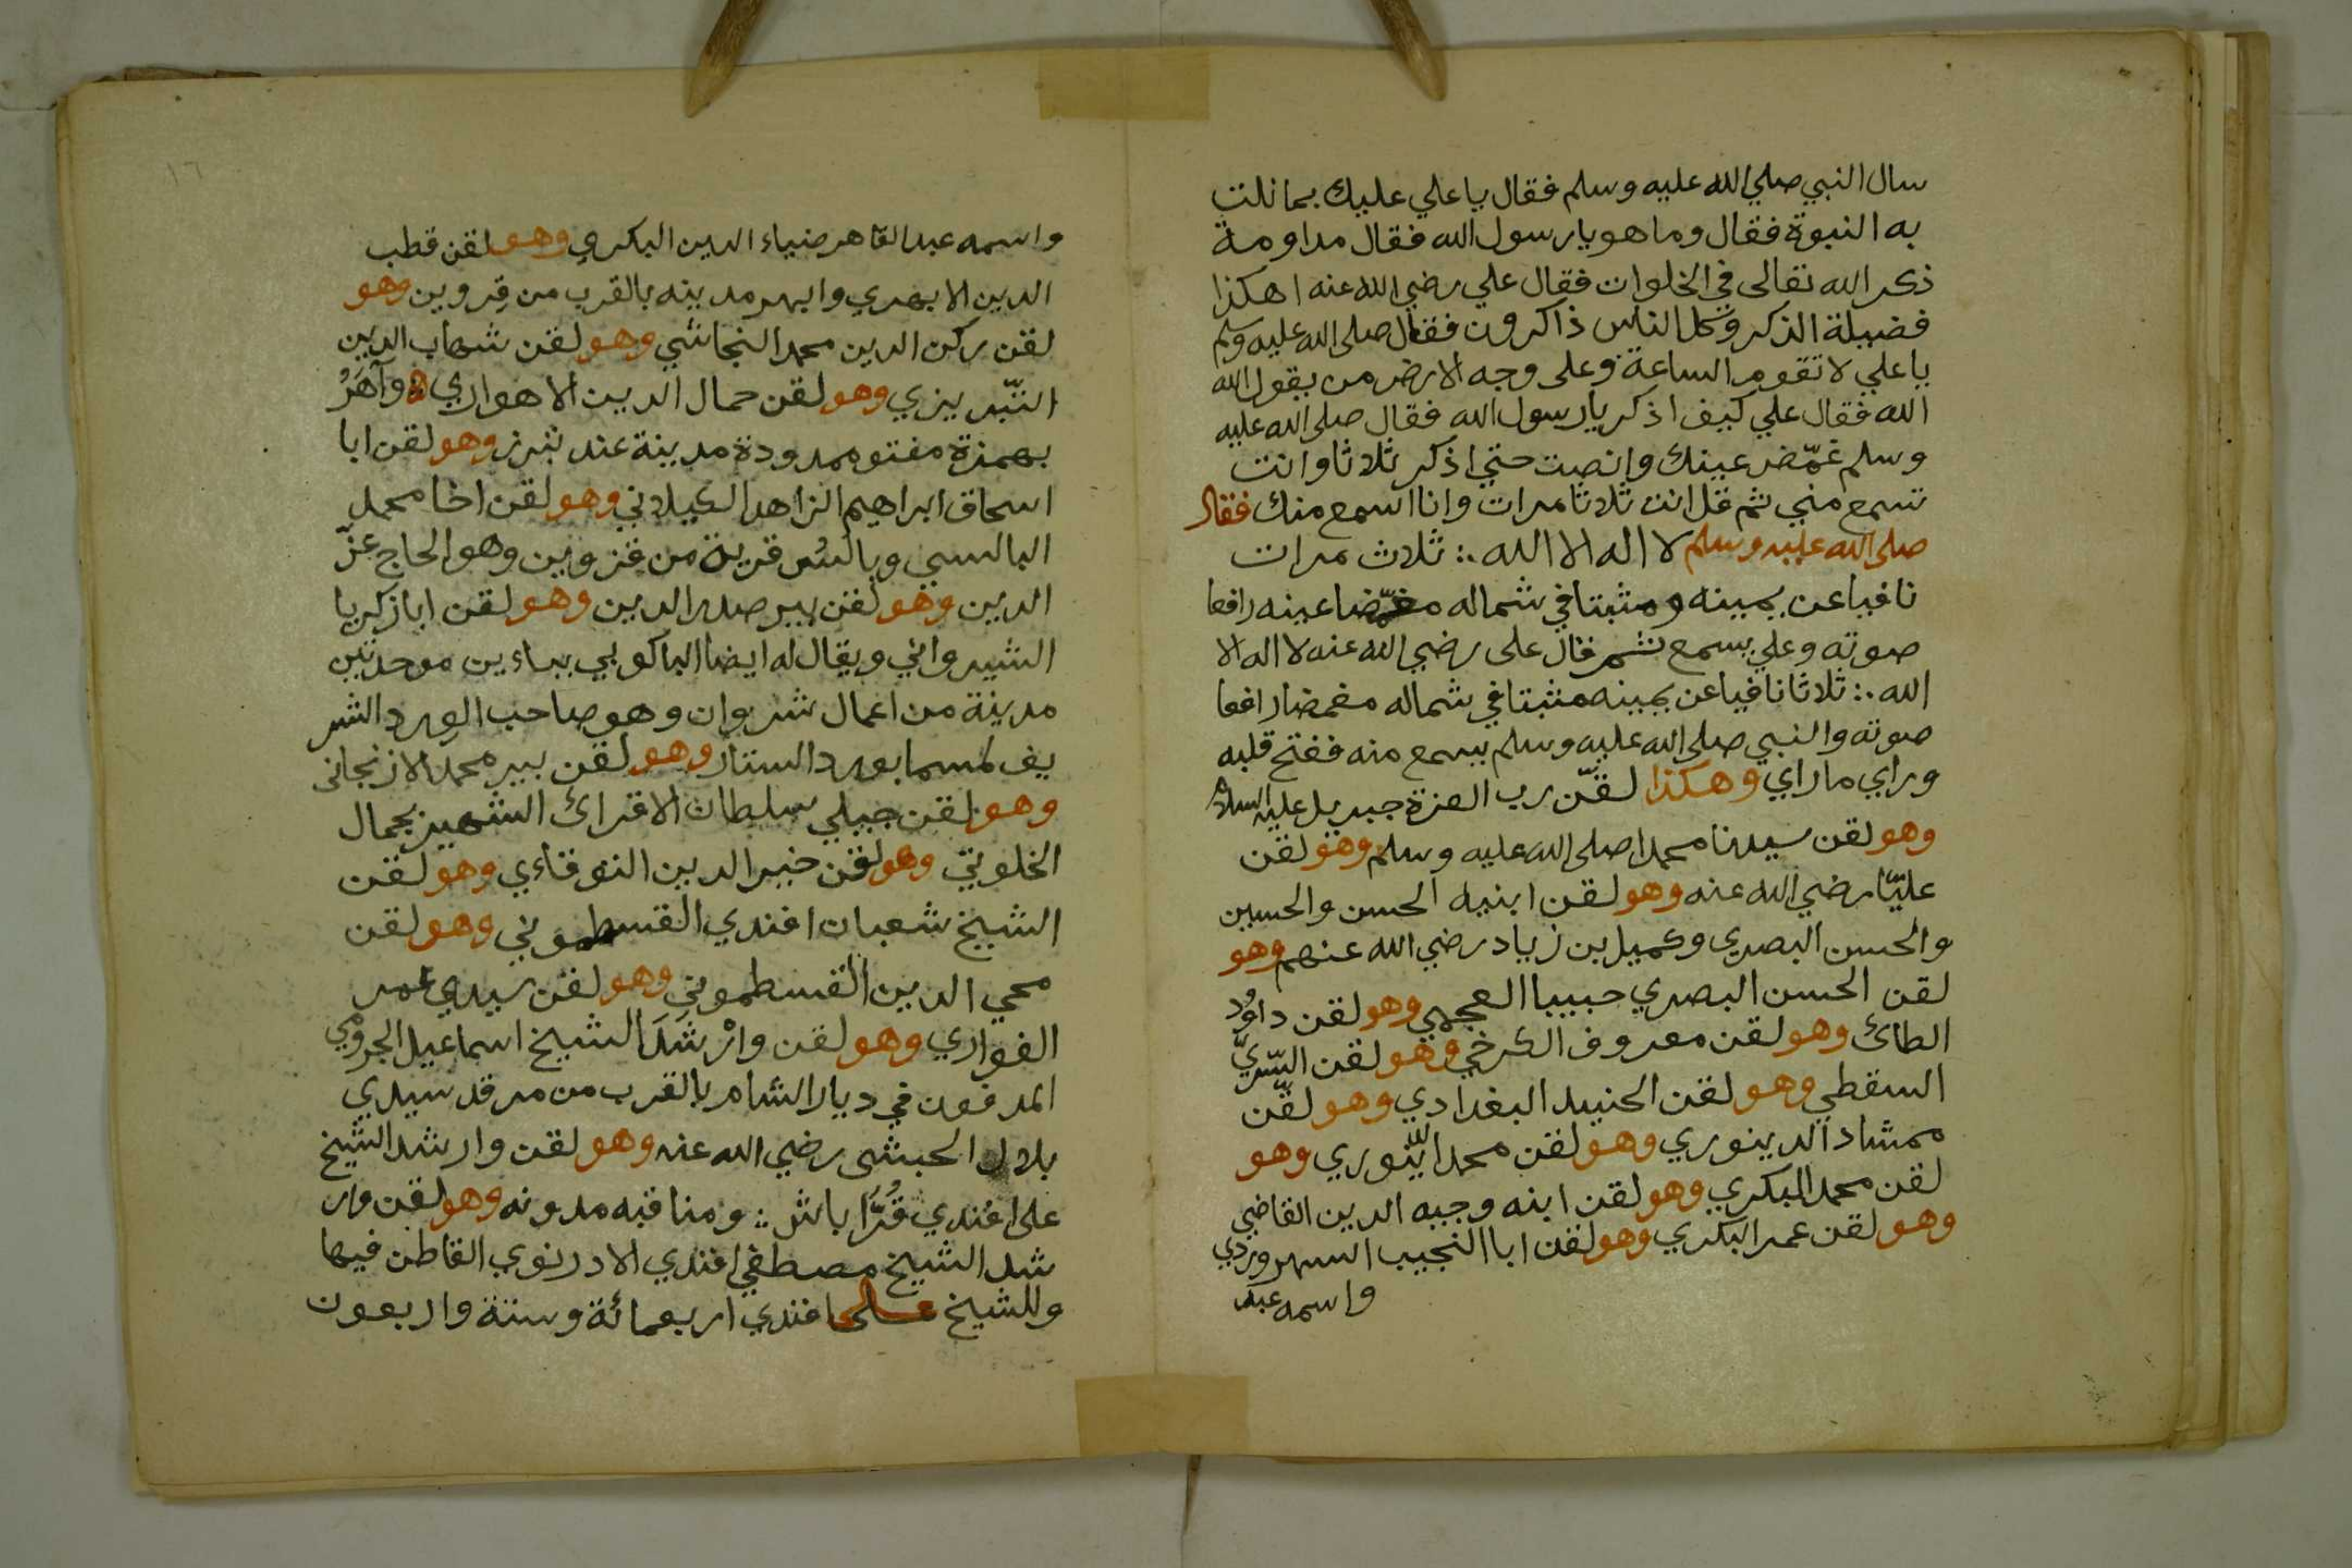 سال النبي صلي الله عليه وسلم فقال يا علي عليك بما نلت
به النبوة فقال وما هو يا رسول الله فقال مداومة
ذكر الله تعالى في الخلوات فقال علي رضي الله عنه اهكذا
فضيلة الذكر وكل الناس ذاكرون فقال صلى الله عليه وسلم
يا علي لا تقوم الساعة وعلى وجه الارض من يقول الله
الله فقال علي كيف اذكر يا رسول الله فقال صلى الله عليه
وسلم غمّض عينك وانصت حتي اذكر ثلاثا وانت
تسمع مني ثم قل انت ثلاثا مرات وانا اسمع منك فقال
صلى الله عليه وسلم لا اله الا الله ؞ ثلاث مرات
نافيا عن يمينه ومثبتا في شماله مغمّضا عينه رافعا
صوته وعلي يسمع ثم قال على رضي الله عنه لا اله الا
الله ؞ ثلاثا نافيا عن يمينه مثبتا في شماله مغمضا رافعا
صوته والنبي صلى الله عليه وسلم يسمع منه ففتح قلبه
وراي ما راي وهكذا لقّن رب العزة جبريل عليه السلام
وهو لقن سيدنا محمدا صلى الله عليه وسلم وهو لقن
عليّا رضي الله عنه وهو لقن ابنيه الحسن والحسين
والحسن البصري وكميل بن زياد رضي الله عنهم وهو
لقن الحسن البصري حبيبا العجمي وهو لقن داوُد
الطائ وهو لقن معروف الكرخي وهو لقن السّريّ
السقطي وهو لقن الجنيد البغدادي وهو لقّن
ممشاد الدينوري وهو لقن محمد الدينوري وهو
لقن محمد البكري وهو لقن ابنه وجيه الدين القاضي
وهو لقن عمر البكري وهو لقن ابا النجيب السهروردي
واسمه عبد
١٦
واسمه عبد القاهر ضياء الدين البكري وهو لقن قطب
الدين الابهري وابهر مدينه بالقرب من قزوين وهو
لقن ركن الدين محمد النجاشي وهو لقن شهاب الدين
التّبريزي وهو لقن جمال الدين الاهواري وآهَرُ
بهمزة مفتوممدودة مدينة عند تبرز وهو لقن ابا
اسحاق ابراهيم الزاهد الكيلاني وهو لقن اخا محمد
البالسي وبالسُ قرية من قزوين وهو الحاج عزّ
الدين وهو لقن بير صدر الدين وهو لقن ابا زكريا
الشيرواني ويقال له ايضا الباكوبي بباءين موحدتين
مدينة من اعمال شروان وهو صاحب الورد الشر
يف لمسما بورد الستار وهو لقن بير محمد الازنجانى
وهو لقن جبلي سلطان الاقرائ الشهير بجمال
الخلوتي وهو لقن خير الدين التوقاءي وهو لقن
الشيخ شعبان افندي القسطموني وهو لقن
محي الدين القسطموني وهو لقن سيدي عمر
الفوادي وهو لقن وارْشَدَ الشيخ اسماعيل الجرومي
المدفون في ديار الشام بالقرب من مرقد سيدي
بلال الحبشى رضي الله عنه وهو لقن وارشد الشيخ
على افندي قُرَّا باش ؞ ومناقبه مدونه وهو لقن وار
شد الشيخ مصطفي افندي الادرنوي القاطن فيها
وللشيخ على افندي اربعمائة وستة واربعون